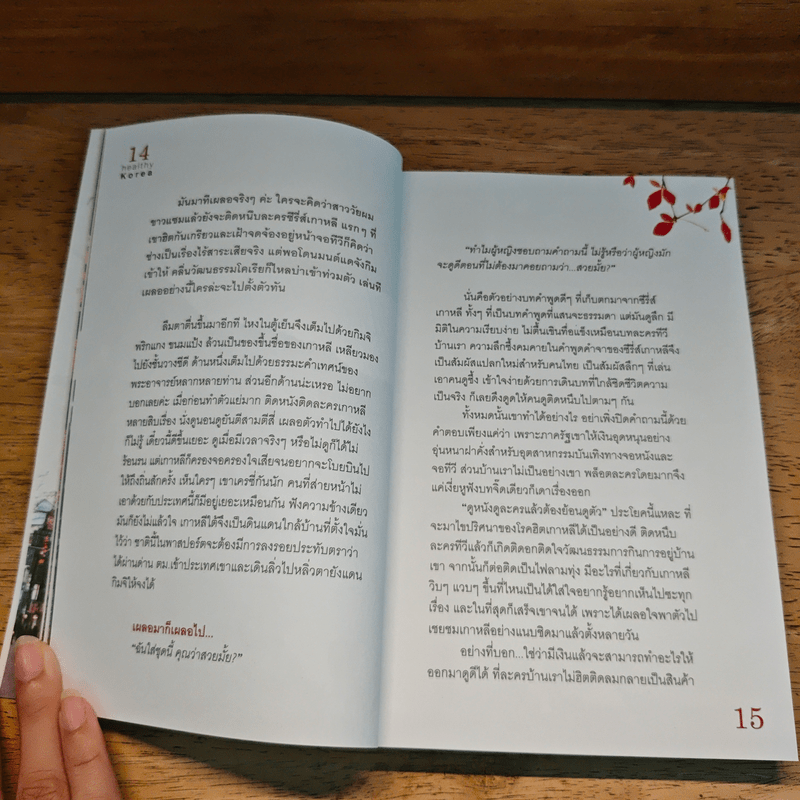 14
healthy
Korea
มันมาทีเผลอจริงๆ ค่ะ ใครจะคิดว่าสาววัยผม
ขาวแซมแล้วยังจะติดหนึบละครซีรี่ส์เกาหลี แรกๆ ที่
เขาฮิตกันเกรียวและเฝ้าจดจ้องอยู่หน้าจอทีวีก็คิดว่า
ช่างเป็นเรื่องไร้สาระเสียจริง แต่พอโดนมนต์แดจังกึม
เข้าให้ คลื่นวัฒนธรรมโคเรียก็ไหลบ่าเข้าท่วมตัว เล่นที
เผลออย่างนี้ใครล่ะจะไปตั้งตัวทัน
ลืมตาตื่นขึ้นมาอีกที ไหงในตู้เย็นจึงเต็มไปด้วยกิมจิ
พริกแกง ขนมแป้ง ล้วนเป็นของขึ้นชื่อของเกาหลี เหลียวมอง
ไปยังชั้นวางซีดี ด้านหนึ่งเต็มไปด้วยธรรมะคำเทศน์ของ
พระอาจารย์หลากหลายท่าน ส่วนอีกด้านน่ะเหรอ ไม่อยาก
บอกเลยค่ะ เมื่อก่อนทำตัวแย่มาก ติดหนังติดละครเกาหลี
หลายสิบเรื่อง นั่งดูนอนดูยันตีสามตีสี่ เผลอตัวทำไปได้ยังไง
ก็ไม่รู้ เดี๋ยวนี้ดีขึ้นเยอะ ดูเมื่อมีเวลาจริงๆ หรือไม่ดูก็ได้ไม่
ร้อนรน แต่เกาหลีก็ครองจอครองใจเสียจนอยากจะโบยบินไป
ให้ถึงถิ่นสักครั้ง เห็นใครๆ เขาเครซี่กันนัก คนที่ส่ายหน้าไม่
เอาด้วยกับประเทศนี้ก็มีอยู่เยอะเหมือนกัน ฟังความข้างเดียว
มันก็ยังไม่แล้วใจ เกาหลีใต้จึงเป็นดินแดนใกล้บ้านที่ตั้งใจมั่น
ไว้ว่า ชาตินี้ในพาสปอร์ตจะต้องมีการลงรอยประทับตราว่า
ได้ผ่านด่าน ตม.เข้าประเทศเขาและเดินลิ่วไปหลิ่วตายังแดน
กิมจิให้จงได้
เผลอมาก็เผลอไป...
“ฉันใส่ชุดนี้ คุณว่าสวยมั้ย?”
“ทำไมผู้หญิงชอบถามคำถามนี้ ไม่รู้หรือว่าผู้หญิงมัก
จะดูดีตอนที่ไม่ต้องมาคอยถามว่า...สวยมั้ย?”
นั่นคือตัวอย่างบทคำพูดดีๆ ที่เก็บตกมาจากซีรี่ส์
เกาหลี ทั้งๆ ที่เป็นบทคำพูดที่แสนจะธรรมดา แต่มันดูลึก มี
มิติในความเรียบง่าย ไม่ตื้นเขินที่อแข็งเหมือนบทละครทีวี
บ้านเรา ความลึกซึ้งคมคายในคำพูดคำจาของซีรี่ส์เกาหลีจึง
เป็นสัมผัสแปลกใหม่สำหรับคนไทย เป็นสัมผัสลึกๆ ที่เล่น
เอาคนดูซึ้ง เข้าใจง่ายด้วยการเดินบทที่ใกล้ชิดชีวิตความ
เป็นจริง ก็เลยดึงดูดให้คนดูติดหนึบไปตามๆ กัน
ทั้งหมดนั้นเขาทำได้อย่างไร อย่าเพิ่งปิดคำถามนี้ด้วย
คำตอบเพียงแค่ว่า เพราะภาครัฐเขาให้เงินอุดหนุนอย่าง
อุ่นหนาฝาคั่งสำหรับอุตสาหกรรมบันเทิงทางจอหนังและ
จอทีวี ส่วนบ้านเราไม่เป็นอย่างเขา พล็อตละครโดยมากจึง
แค่เงี่ยหูฟังบทจิ๊ดเดียวก็เดาเรื่องออก
“ดูหนังดูละครแล้วต้องย้อนดูตัว” ประโยคนี้แหละ ที่
จะมาไขปริศนาของโรคฮิตเกาหลีได้เป็นอย่างดี ติดหนึบ
ละครทีวีแล้วก็เกิดติดอกติดใจวัฒนธรรมการกินการอยู่บ้าน
เขา จากนั้นก็ต่อติดเป็นไฟลามทุ่ง มีอะไรที่เกี่ยวกับเกาหลี
วิบๆ แวบๆ ขึ้นที่ไหนเป็นได้ใส่ใจอยากรู้อยากเห็นไปซะทุก
เรื่อง และในที่สุดก็เสร็จเขาจนได้ เพราะได้เผลอใจพาตัวไป
เชยชมเกาหลีอย่างแนบชิดมาแล้วตั้งหลายวัน
อย่างที่บอก...ใช่ว่ามีเงินแล้วจะสามารถทำอะไรให้
ออกมาดูดีได้ ที่ละครบ้านเราไม่ฮิตติดลมกลายเป็นสินค้า
15